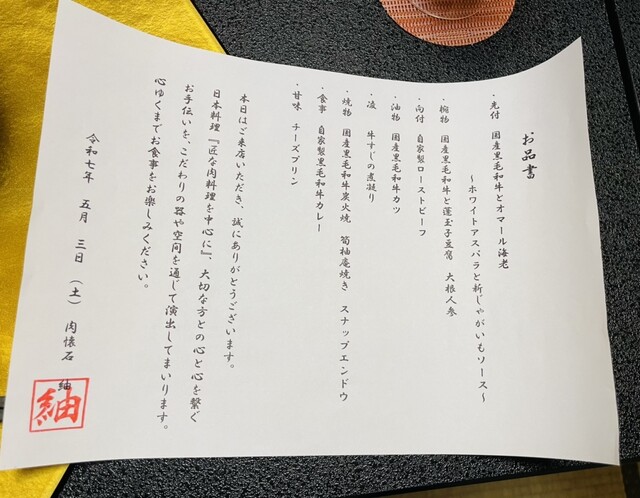 お品書
・先付　国産黒毛和牛とオマール海老
～ホワイトアスパラと新じゃがいもソース～
・椀物　国産黒毛和牛と蓬玉子豆腐　大根人参
・向付　自家製ローストビーフ
・油物　国産黒毛和牛カツ
・凌　牛すじの煮凝り
・焼物　国産黒毛和牛炭火焼　筍柚庵焼き　スナップエンドウ
・食事　自家製黒毛和牛カレー
・甘味　チーズプリン
本日はご来店いただき、誠にありがとうございます。
日本料理『匠な肉料理を中心に』、大切な方との心と心を繋ぐ
お手伝いを、こだわりの器や空間を通じて演出してまいります。
心ゆくまでお食事をお楽しみください。
令和七年　五月　三日　（土）　肉懐石　紬
紬